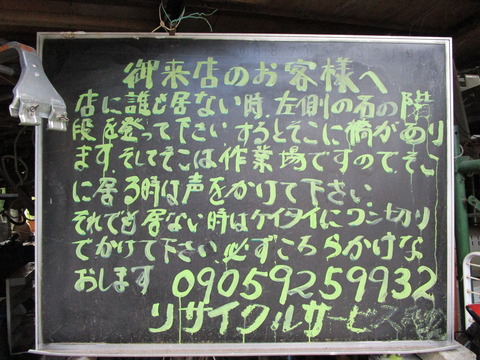 御来店のお客様へ
店に誰も居ない時、左側の石の階
段を登って下さい。するとそこに橋があり
ます。そしてそこは、作業場ですので、そこ
に居る時は声をかけて下さい。
それでも居ない時はケイタイにワン切り
でかけて下さい。必ずこちらかけな
おします 09059259932
リサイクルサービス